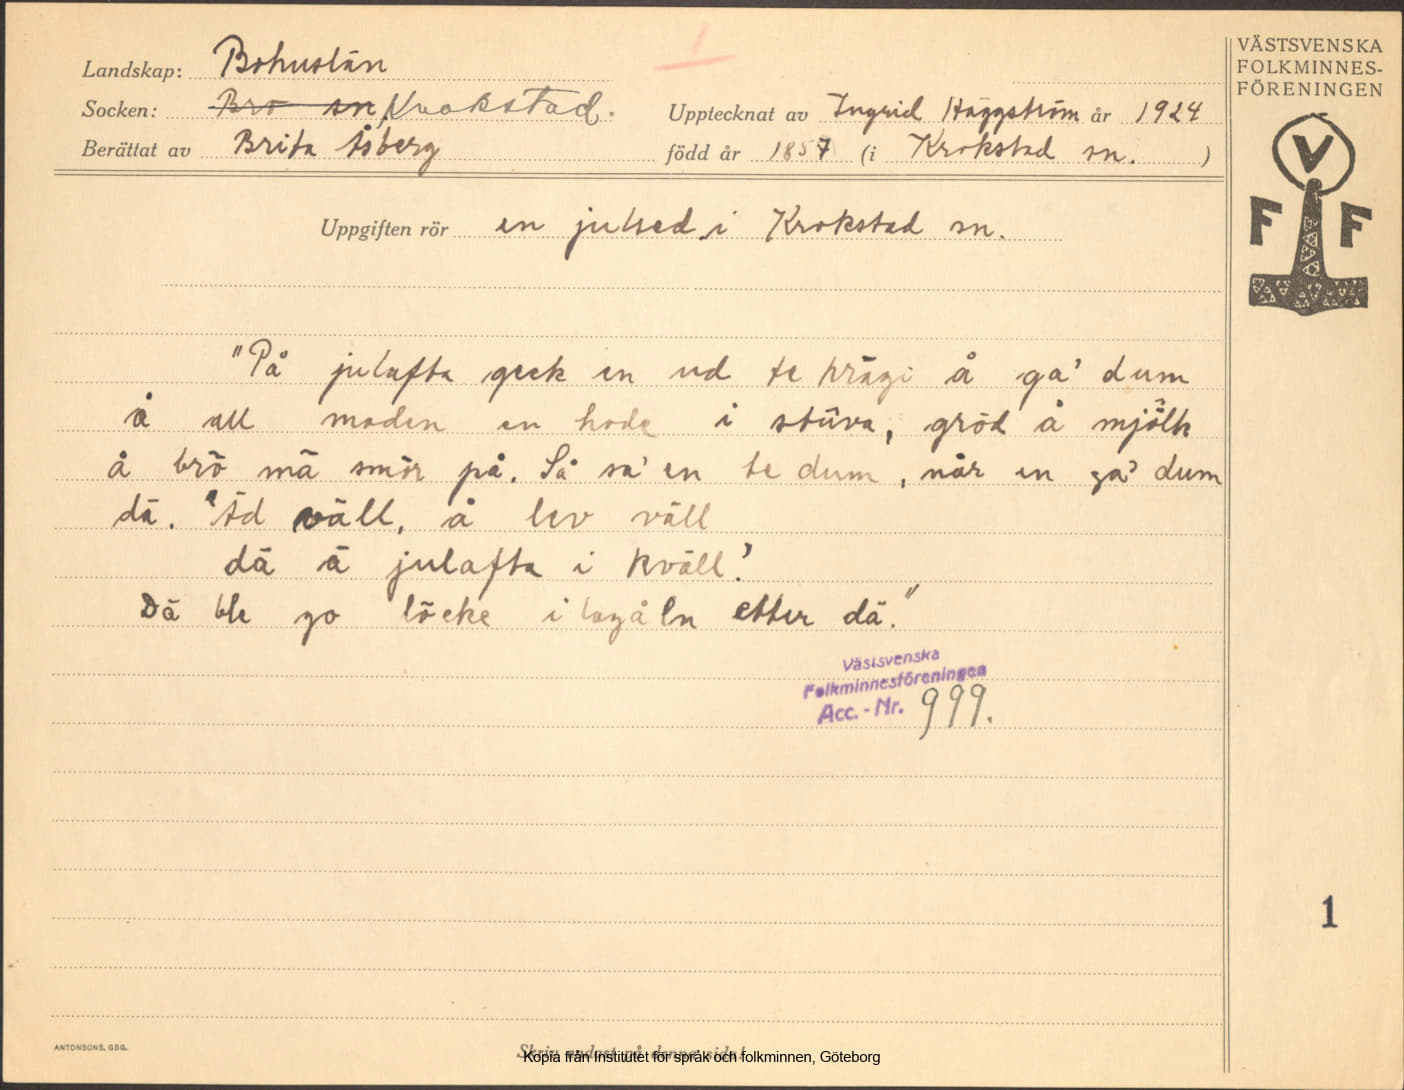 Landskap: Bohuslän
Socken: Bro sn Krokstad.
Upptecknat av Ingrid Häggström år 1924
Berättat av Brita Åsberg
född år 1857 (i Krokstad sn. )
VÄSTSVENSKA
FOLKMINNES-
FÖRENINGEN
V
F F
Uppgiften rör en julsed i Krokstad sn.
"På julafta geck en ud te krägi å ga' dum
å all maden en hade i stūva, gröd å mjölk
å brö mä smör på. Så sa' en te dum, når en ga' dum
dä. "Äd väll, å lev väll
dä ä julafta i kväll."
Dä ble go löcke i lagåln etter dä."
Västsvenska
Folkminnesföreningen
Acc. - Nr. 999.
1
1
ANTONSONS, GBG.
Skriv endast på denna sida!
Kopia från Institutet för språk och folkminnen, Göteborg